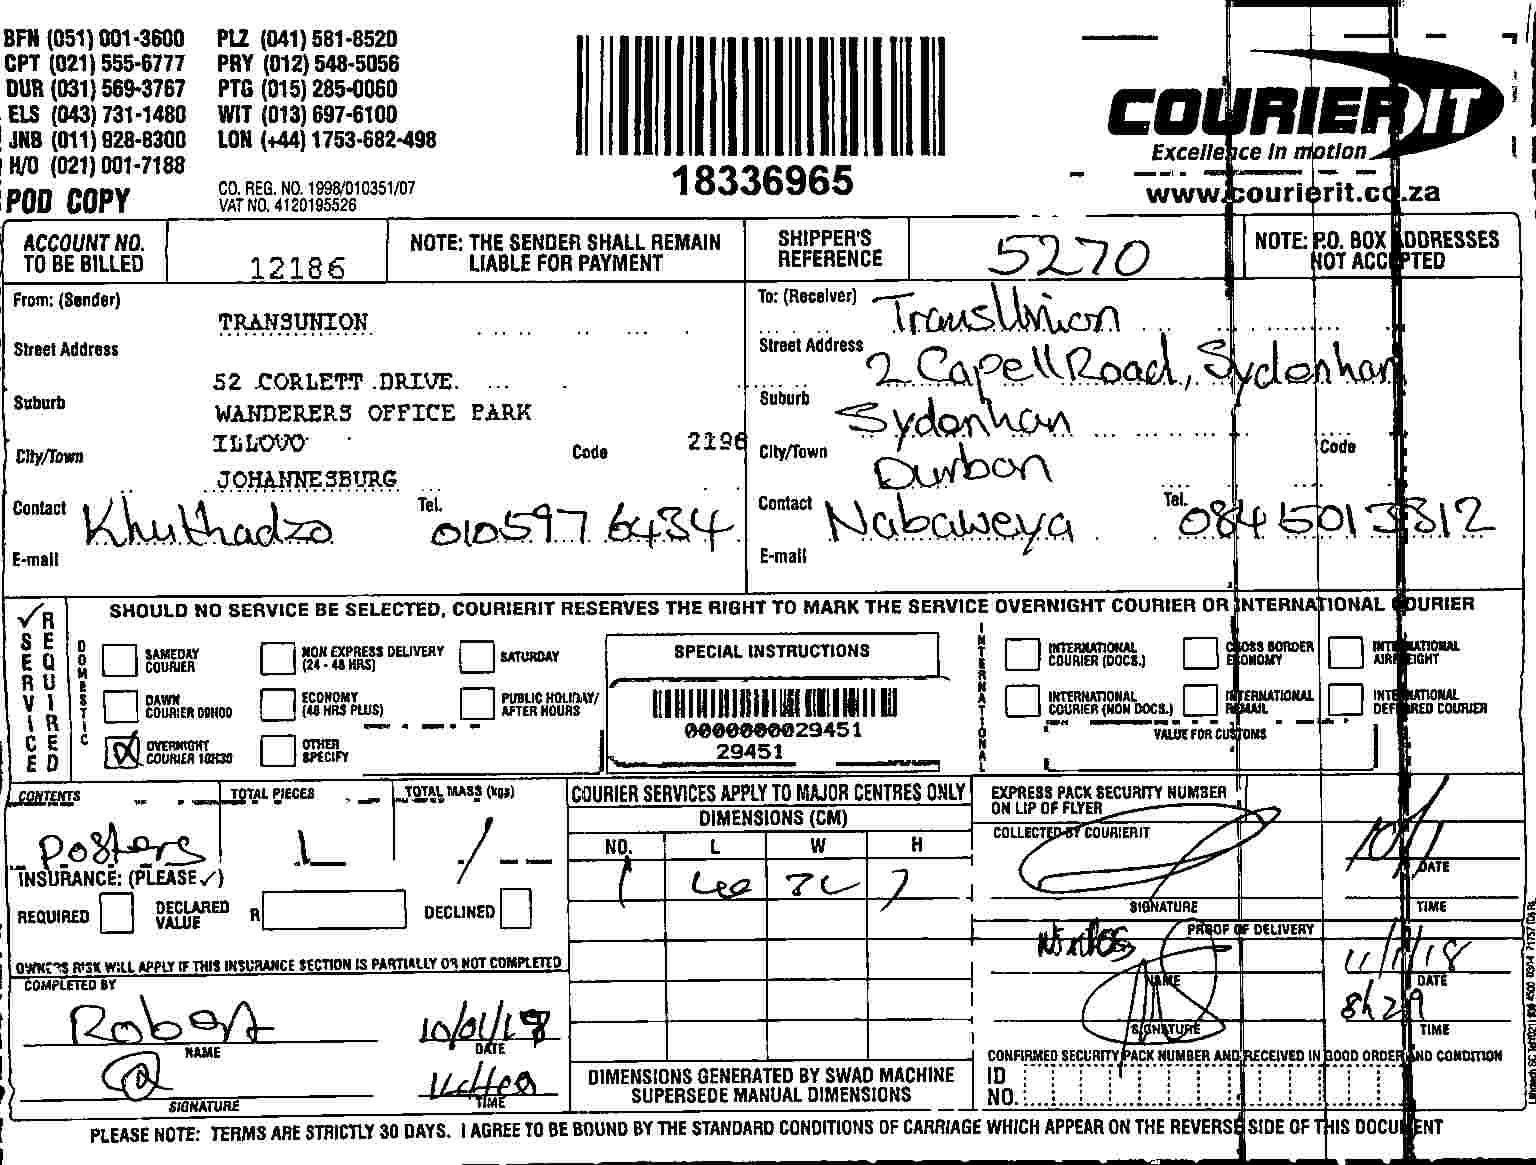 BFN (051) 001-3600 PLZ (041) 581-8520
CPT (021) 555-6777 PRY (012) 548-5056
DUR (031) 569-3767 PTG (015) 285-0060
ELS (043) 731-1480 WIT (013) 697-6100
JNB (011) 928-8300 LON (+44) 1753-682-498
H/O (021) 001-7188
POD COPY
CO. REG. NO. 1998/010351/07
VAT NO. 4120195526
18336965
COURIER IT
Excellence in motion
www.courierit.co.za
ACCOUNT NO. TO BE BILLED 12186
NOTE: THE SENDER SHALL REMAIN LIABLE FOR PAYMENT
SHIPPER'S REFERENCE 5270
NOTE: P.O. BOX ADDRESSES NOT ACCEPTED
From: (Sender) TRANSUNION
Street Address 52 CORLETT DRIVE
Suburb WANDERERS OFFICE PARK
ILLOVO
City/Town JOHANNESBURG Code 2196
Contact Khuthadzo Tel. 0105976434
E-mail
To: (Receiver) TransUnion
Street Address 2 Capell Road, Sydenham
Suburb Sydenham
City/Town Durban Code
Contact Nabaweya Tel.
E-mail
SERVICE REQUIRED
SHOULD NO SERVICE BE SELECTED, COURIERIT RESERVES THE RIGHT TO MARK THE SERVICE OVERNIGHT COURIER OR INTERNATIONAL COURIER
DOMESTIC
SAMEDAY COURIER
NON EXPRESS DELIVERY (24 - 48 HRS)
SATURDAY
DAWN COURIER 09H00
ECONOMY (48 HRS PLUS)
PUBLIC HOLIDAY/ AFTER HOURS
OVERNIGHT COURIER 10H30
OTHER SPECIFY
SPECIAL INSTRUCTIONS
0000000029451
29451
INTERNATIONAL
INTERNATIONAL COURIER (DOCS.)
CROSS BORDER ECONOMY
INTERNATIONAL AIRFREIGHT
INTERNATIONAL COURIER (NON DOCS.)
INTERNATIONAL REMAIL
INTERNATIONAL DEFERRED COURIER
VALUE FOR CUSTOMS
CONTENTS Posters
TOTAL PIECES 1
TOTAL MASS (kgs) 1
INSURANCE: (PLEASE ✓)
REQUIRED DECLARED VALUE R DECLINED
OWNERS RISK WILL APPLY IF THIS INSURANCE SECTION IS PARTIALLY OR NOT COMPLETED
COMPLETED BY
Robert 10/01/18
NAME DATE
SIGNATURE TIME
COURIER SERVICES APPLY TO MAJOR CENTRES ONLY
DIMENSIONS (CM)
NO. L W H
1
DIMENSIONS GENERATED BY SWAD MACHINE SUPERSEDE MANUAL DIMENSIONS
EXPRESS PACK SECURITY NUMBER ON LIP OF FLYER
COLLECTED BY COURIERIT
10/1
DATE
SIGNATURE TIME
PROOF OF DELIVERY
11/1/18
NAME DATE
8h29
SIGNATURE TIME
CONFIRMED SECURITY PACK NUMBER AND RECEIVED IN GOOD ORDER AND CONDITION
ID NO.
PLEASE NOTE: TERMS ARE STRICTLY 30 DAYS. I AGREE TO BE BOUND BY THE STANDARD CONDITIONS OF CARRIAGE WHICH APPEAR ON THE REVERSE SIDE OF THIS DOCUMENT